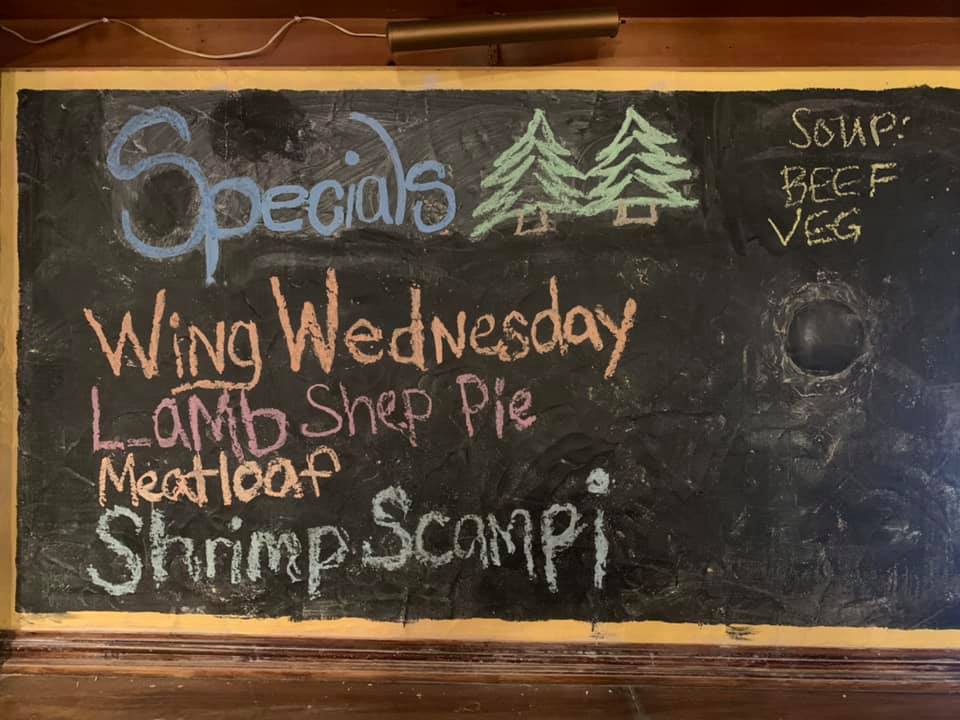 Specials
Wing Wednesday
Lamb Shep Pie
Meatloaf
Shrimp Scampi
SOUP:
BEEF
VEG